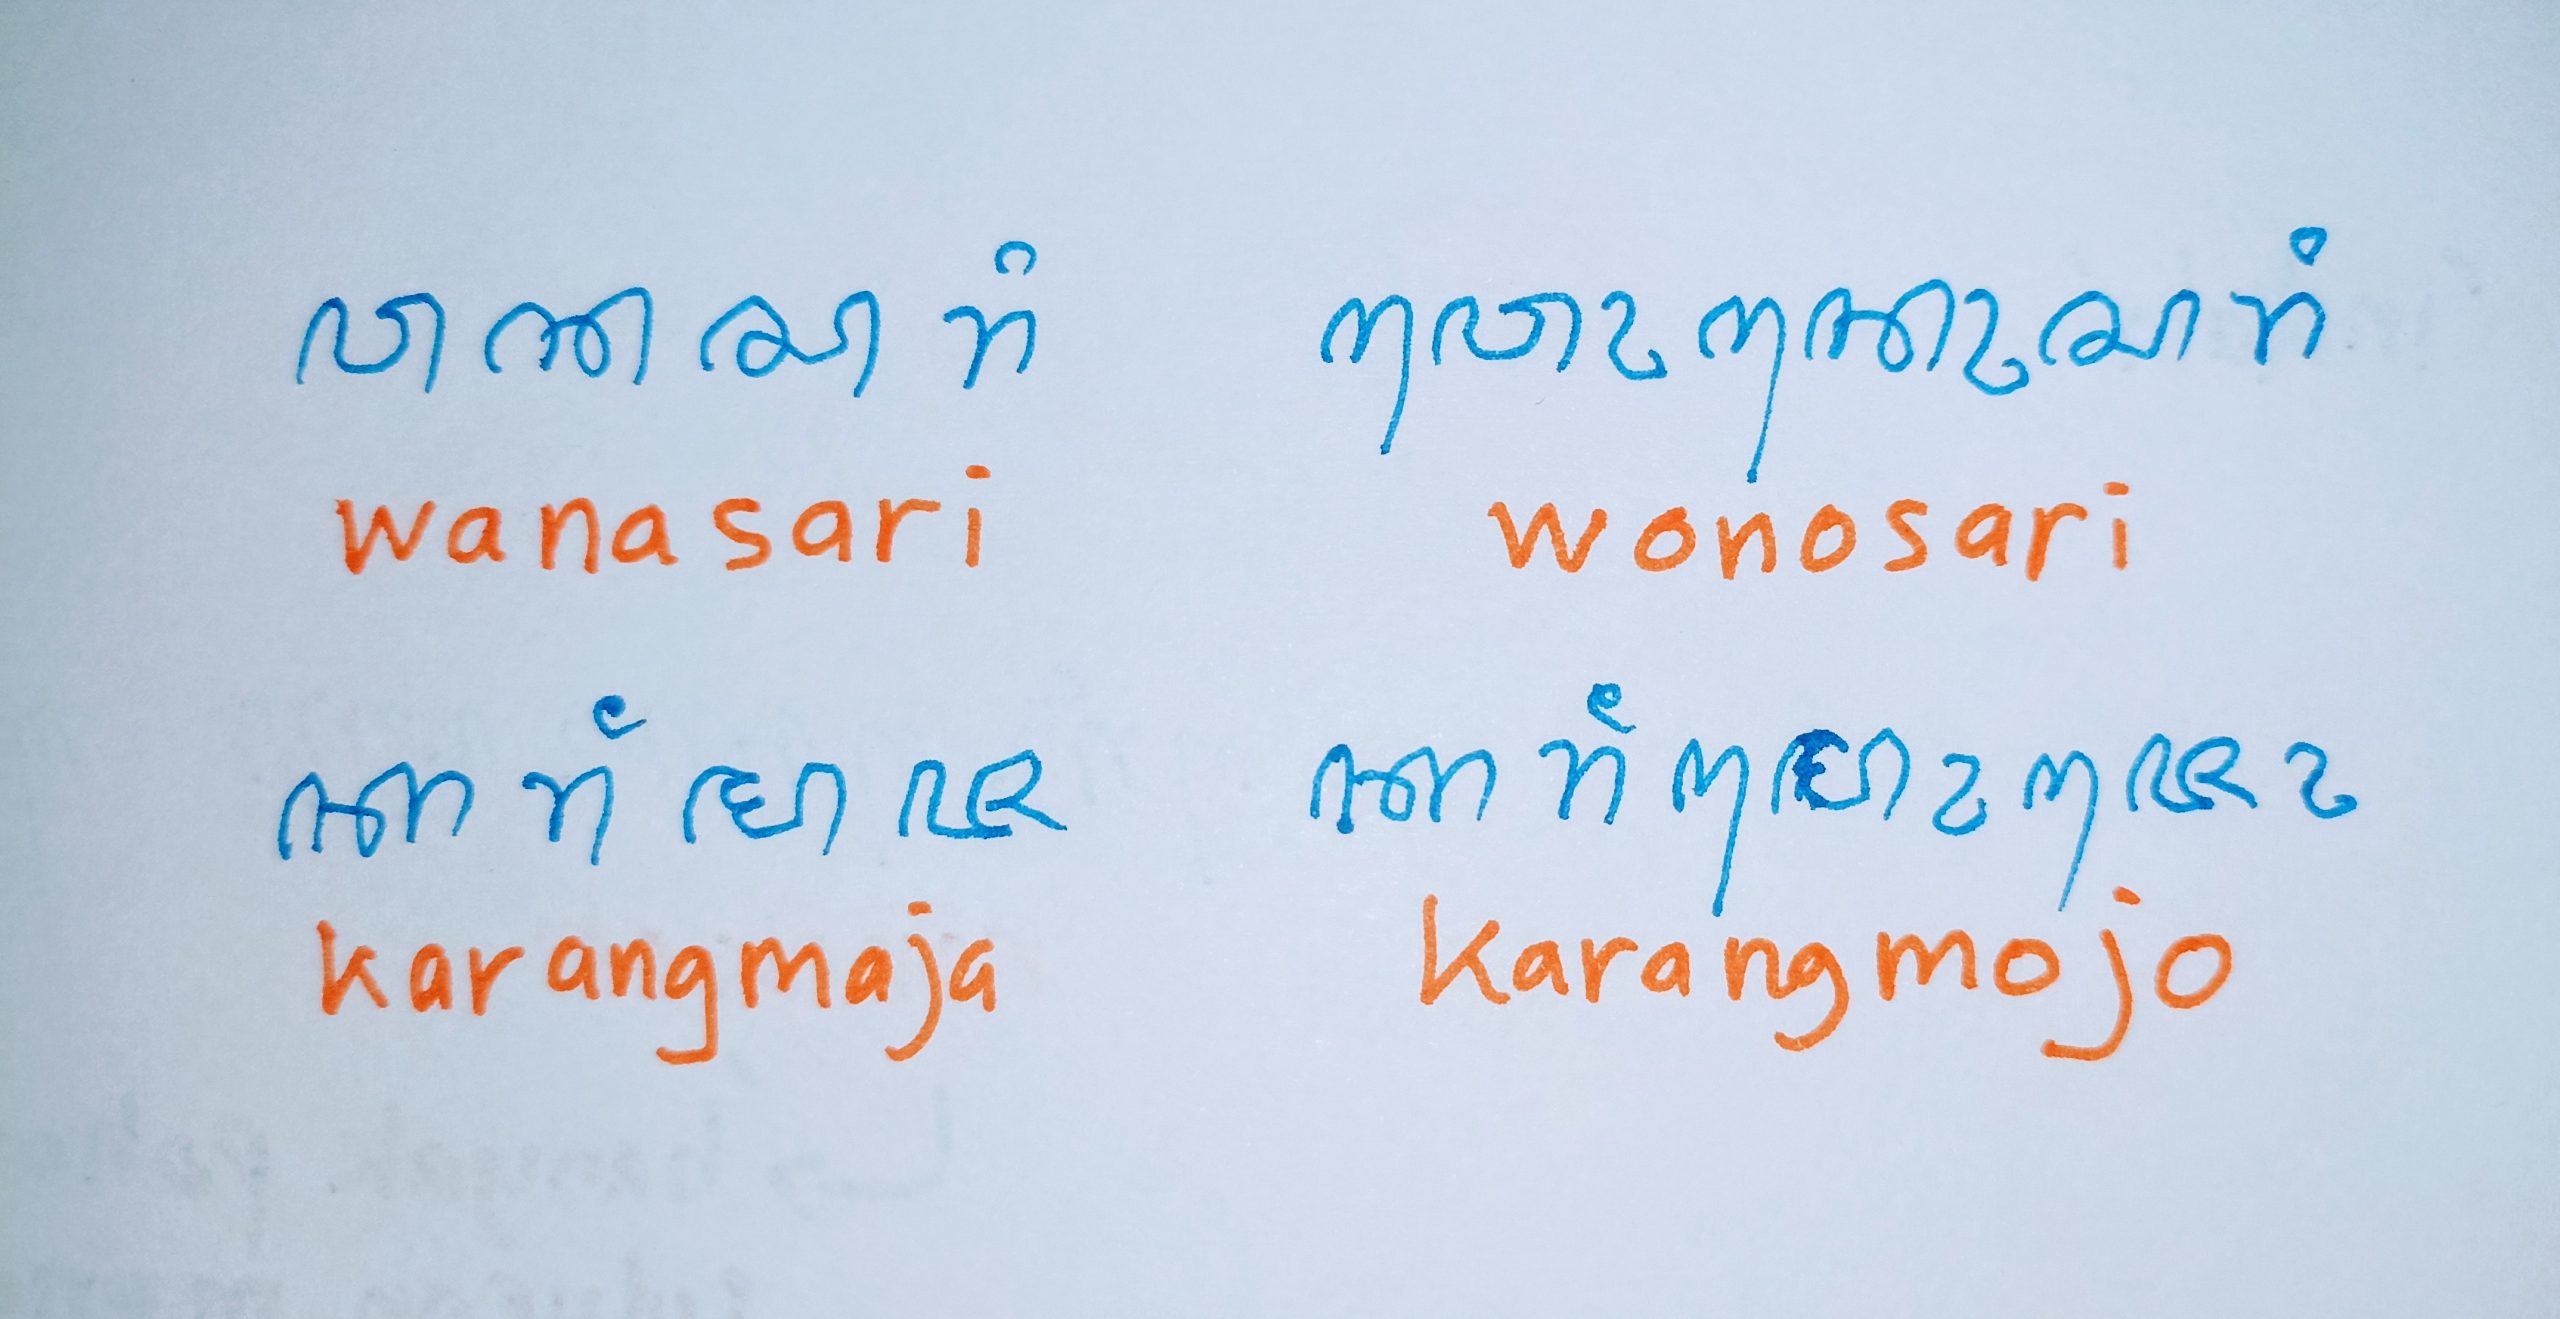 ꦮꦤꦱꦫꦶ ꦮꦺꦴꦤꦺꦴꦱꦫꦶ
wanasari wonosari
ꦏꦫꦁꦩꦗ ꦏꦫꦁꦩꦺꦴꦗꦺꦴ
karangmaja karangmojo